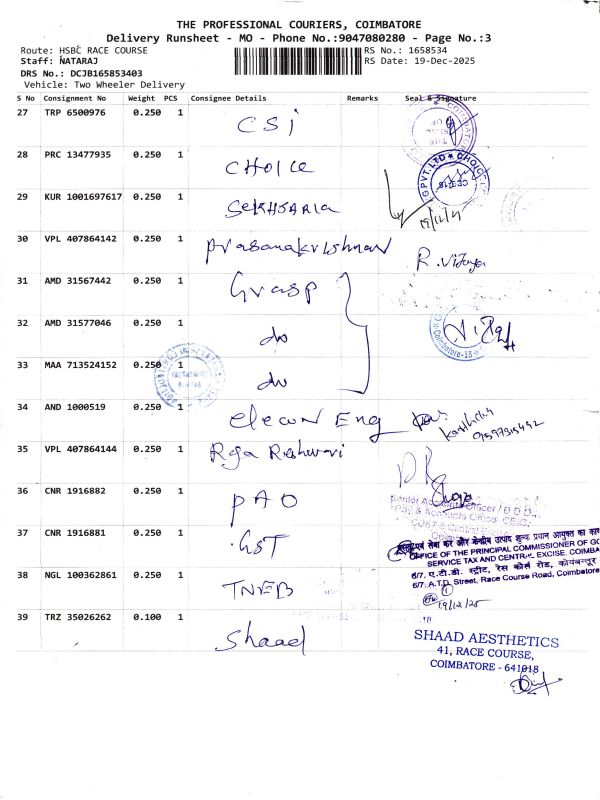 THE PROFESSIONAL COURIERS, COIMBATORE
Delivery Runsheet - MO - Phone No.:9047080280 - Page No.:3
Route: HSBC RACE COURSE RS No.: 1658534
Staff: NATARAJ RS Date: 19-Dec-2025
DRS No.: DCJB165853403
Vehicle: Two Wheeler Delivery
S No Consignment No Weight PCS Consignee Details Remarks Seal & Signature
27 TRP 6500976 0.250 1 CSi
28 PRC 13477935 0.250 1 CHOICE
PVT.LTD ★ CHOIC
29 KUR 1001697617 0.250 1 SEKHSARIA
19/12/25
30 VPL 407864142 0.250 1 Prasanakrishnan R. Vidhya
31 AMD 31567442 0.250 1 Grasp
32 AMD 31577046 0.250 1 do
Coimbatore-18
33 MAA 713524152 0.250 1 do
34 AND 1000519 0.250 1 elecon Eng
35 VPL 407864144 0.250 1 Rga Reshwari
36 CNR 1916882 0.250 1 PAO
Senior Accounts Officer
37 CNR 1916881 0.250 1 GST
OFFICE OF THE PRINCIPAL COMMISSIONER OF
SERVICE TAX AND CENTRAL EXCISE, COIMBA
6/7, ए.टी.डी. स्ट्रीट, रेस कोर्स रोड, कोयंबत्तूर
6/7, A.T.D. Street, Race Course Road, Coimbatore
38 NGL 100362861 0.250 1 TNEB
19/12/25
39 TRZ 35026262 0.100 1 Shaad
SHAAD AESTHETICS
41, RACE COURSE,
COIMBATORE - 641018